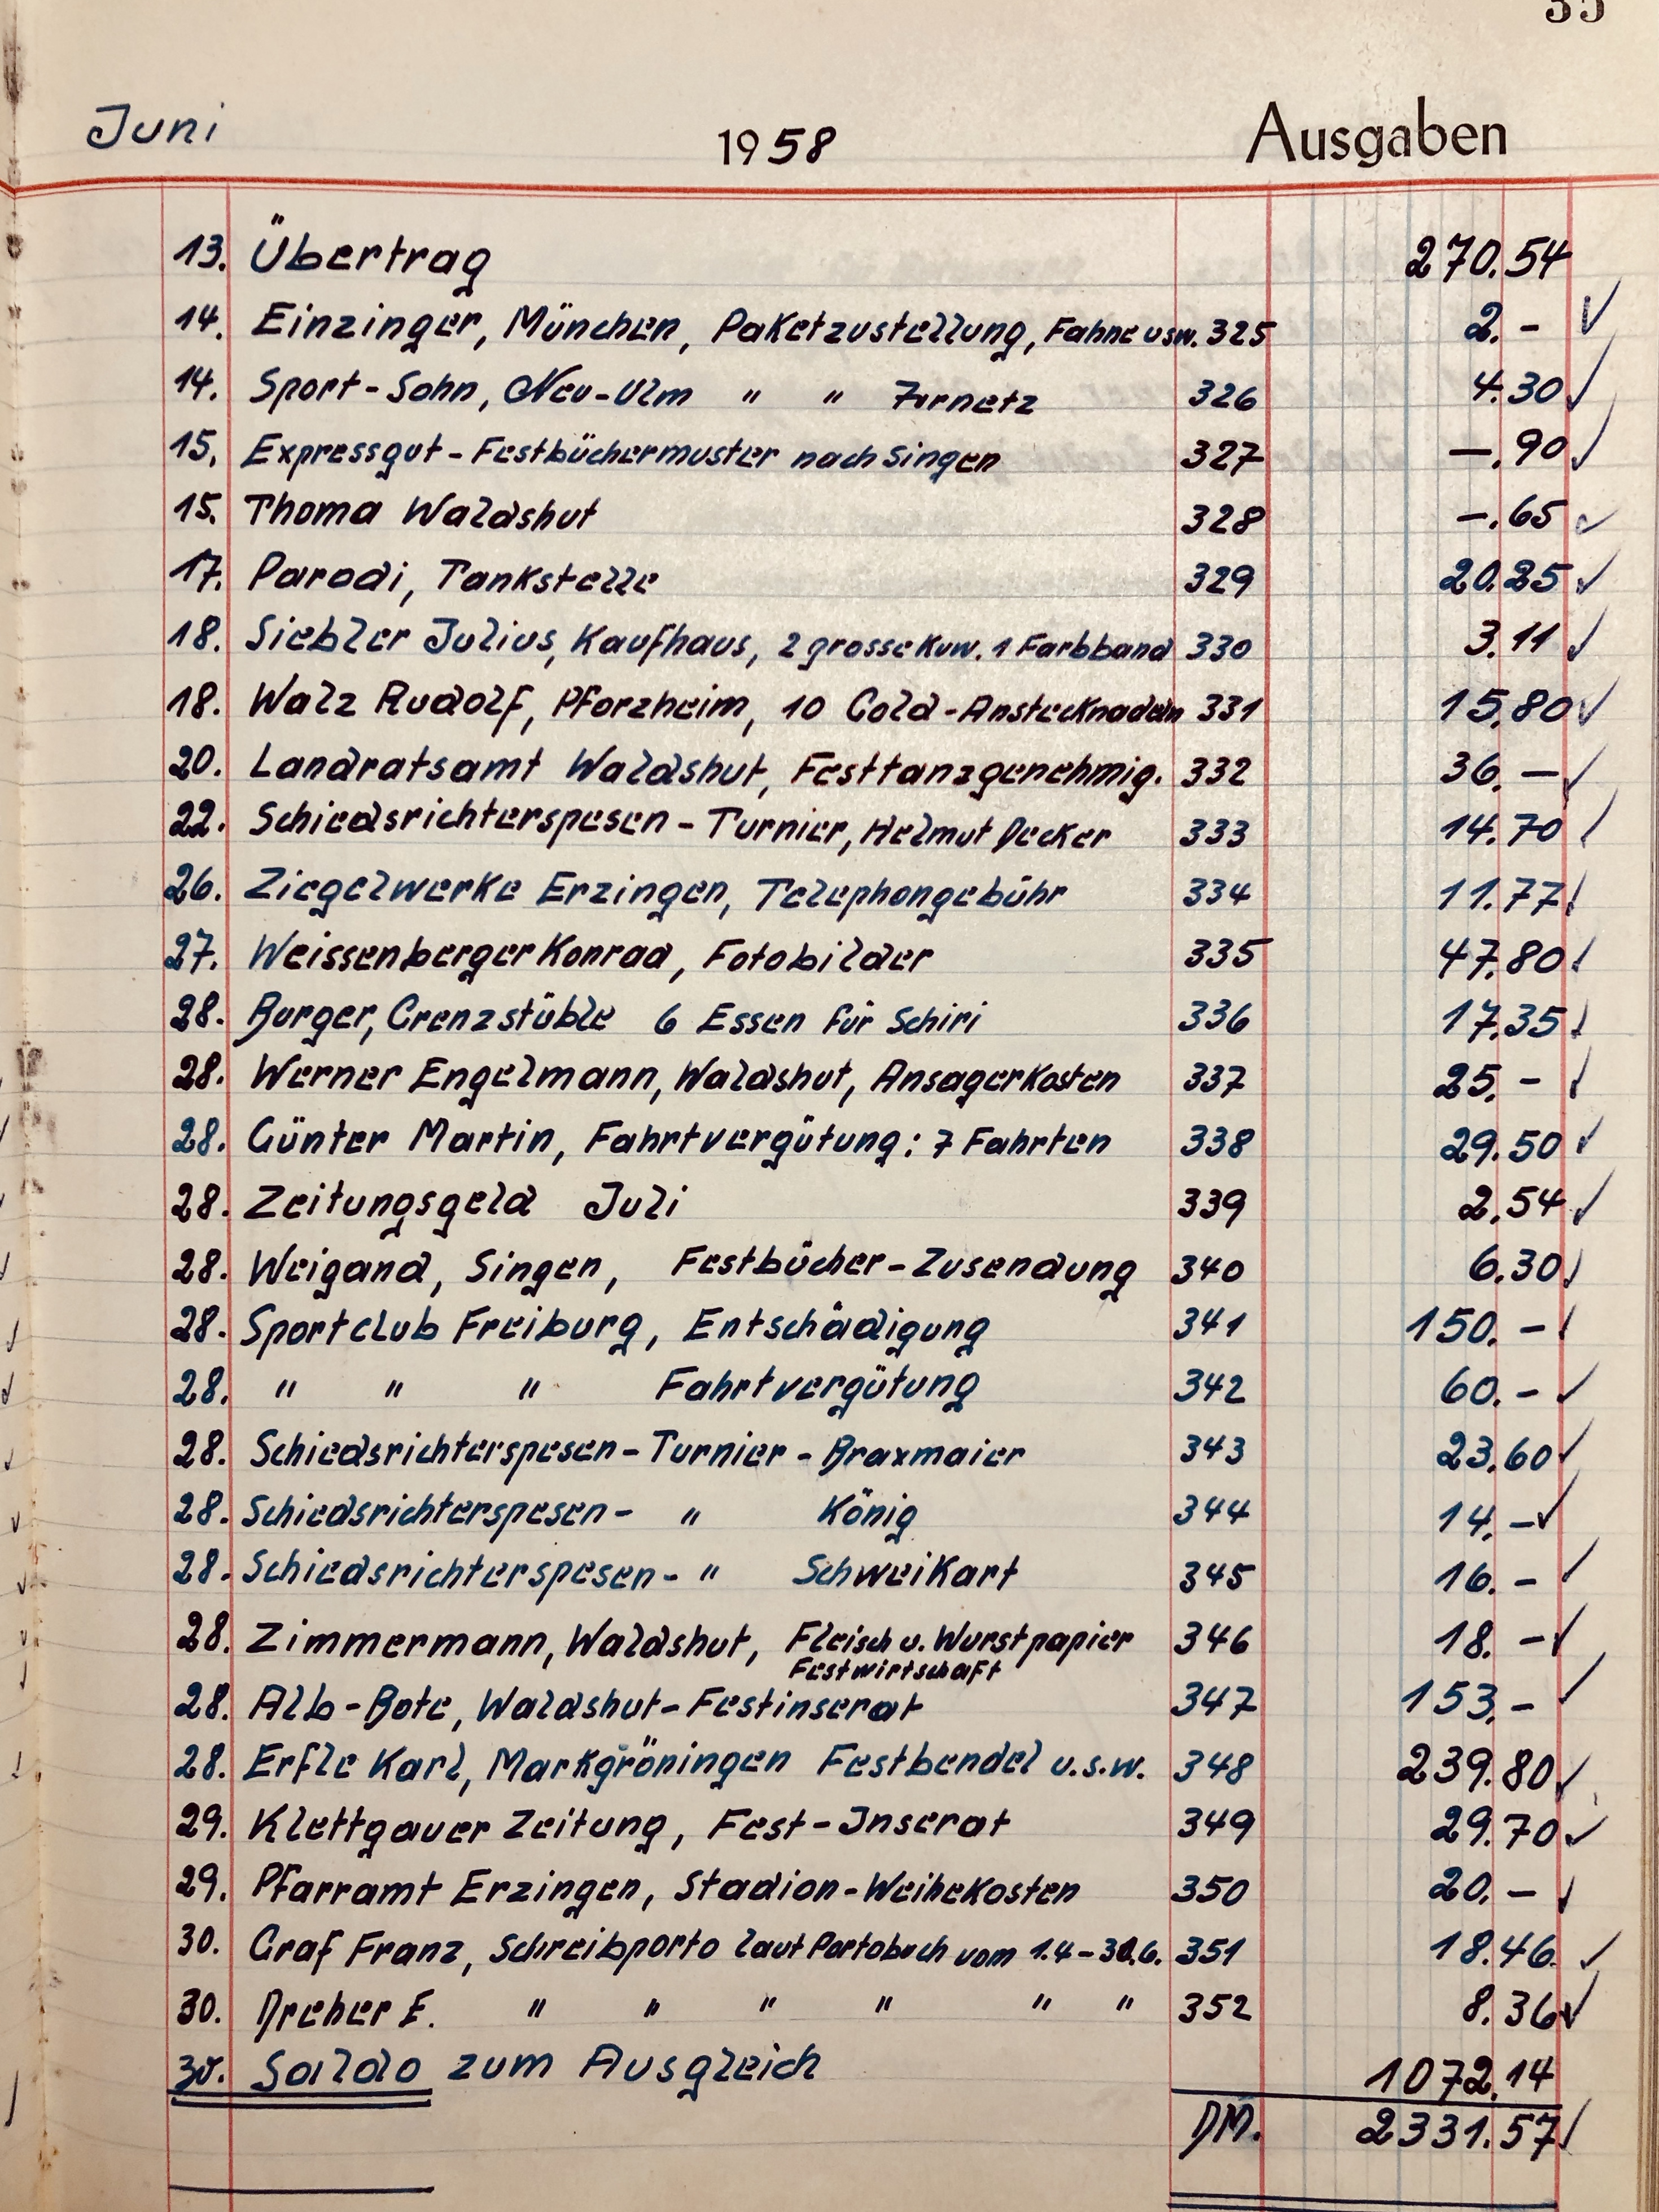 35
Juni 1958 Ausgaben
13. Übertrag 270.54
14. Einzinger, München, Paketzustellung, Fahne usw. 325 2.- ✓
14. Sport-Sohn, Neu-Ulm " " Tornetz 326 4.30 ✓
15. Expressgut-Festbüchermuster nach Singen 327 —.90 ✓
15. Thoma Waldshut 328 -.65 ✓
17. Parodi, Tankstelle 329 20.25 ✓
18. Siebler Julius, Kaufhaus, 2 grosse Kuv. 1 Farbband 330 3.11 ✓
18. Walz Rudolf, Pforzheim, 10 Gold-Anstecknadeln 331 15.80 ✓
20. Landratsamt Waldshut, Festtanzgenehmig. 332 36.— ✓
22. Schiedsrichterspesen - Turnier, Helmut Decker 333 14.70 ✓
26. Ziegelwerke Erzingen, Telephongebühr 334 11.77 ✓
27. Weissenberger Konrad, Fotobilder 335 47.80 ✓
28. Burger, Grenzstüble 6 Essen für Schiri 336 17.35 ✓
28. Werner Engelmann, Waldshut, Ansagerkosten 337 25.- ✓
28. Günter Martin, Fahrtvergütung: 7 Fahrten 338 29.50 ✓
28. Zeitungsgeld Juli 339 2.54 ✓
28. Weigand, Singen, Festbücher-Zusendung 340 6.30 ✓
28. Sportclub Freiburg, Entschädigung 341 150.- ✓
28. " " " Fahrtvergütung 342 60.- ✓
28. Schiedsrichterspesen-Turnier - Braxmaier 343 23.60 ✓
28. Schiedsrichterspesen- " König 344 14.- ✓
28. Schiedsrichterspesen- " Schweikart 345 16.- ✓
28. Zimmermann, Waldshut, Fleisch u. Wurstpapier 346 18.- ✓
Festwirtschaft
28. Alb-Bote, Waldshut-Festinserat 347 153.- ✓
28. Erfle Karl, Markgröningen Festbendel u.s.w. 348 239.80 ✓
29. Klettgauer Zeitung, Fest-Inserat 349 29.70 ✓
29. Pfarramt Erzingen, Stadion-Weihekosten 350 20.- ✓
30. Graf Franz, Schreibporto laut Portobuch vom 1.4-30.6. 351 18.46 ✓
30. Dreher E. " " " " " " 352 8.36 ✓
30. Saldo zum Ausgleich 1072.14
DM. 2331.57 ✓